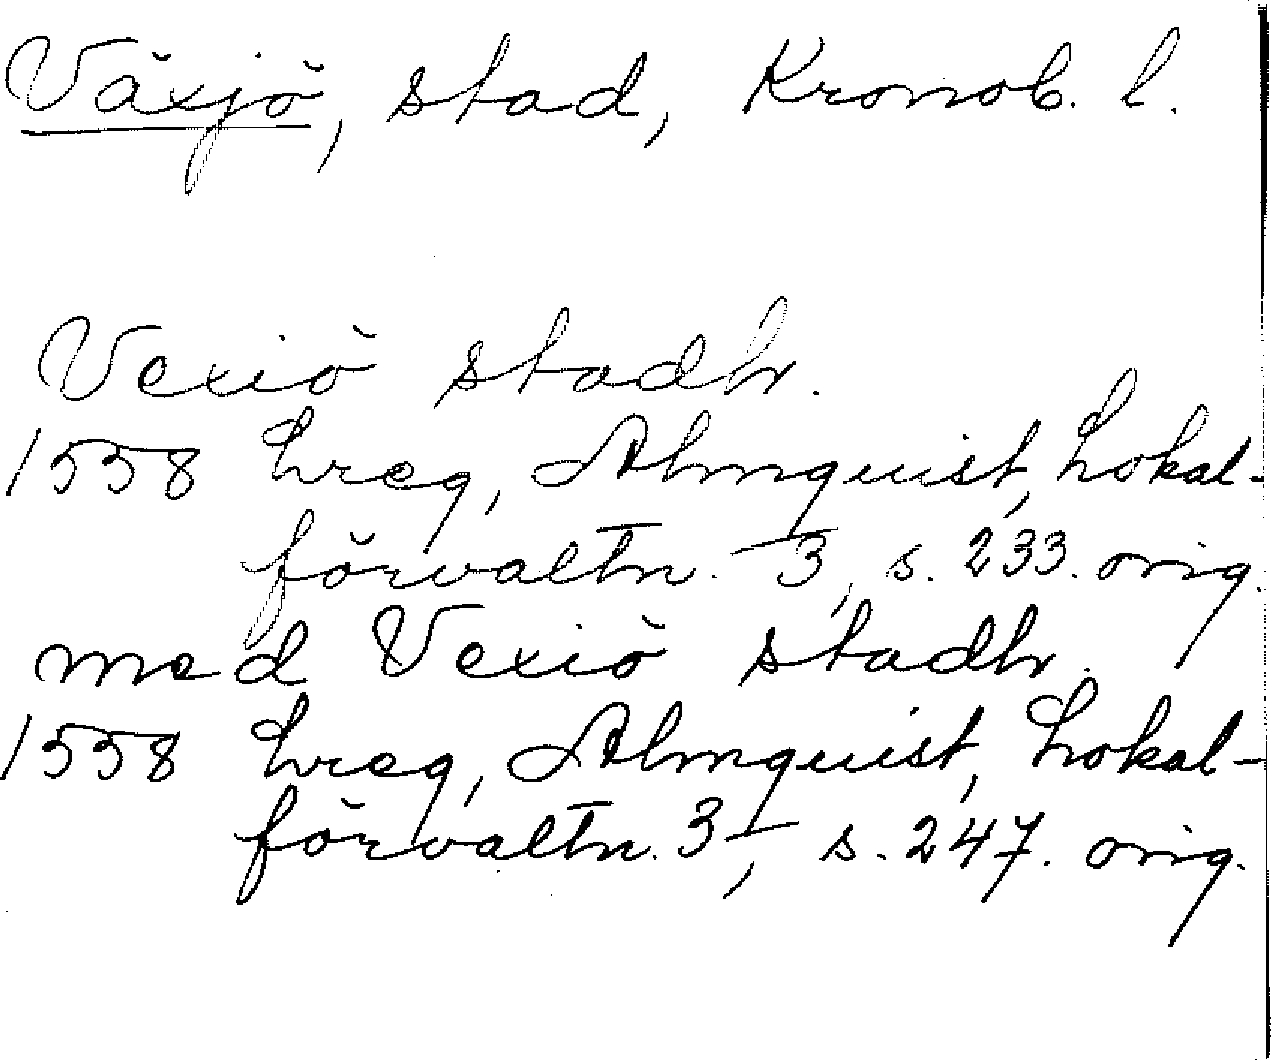 Växjö, stad, Kronob. l.
Vexiö stadh.
1558 Lreg, Almquist, Lokal-
förvaltn. 3, s. 233. orig.
med Vexiö stadh.
1558 Lreg, Almquist, Lokal-
förvaltn. 3, s. 247. orig.